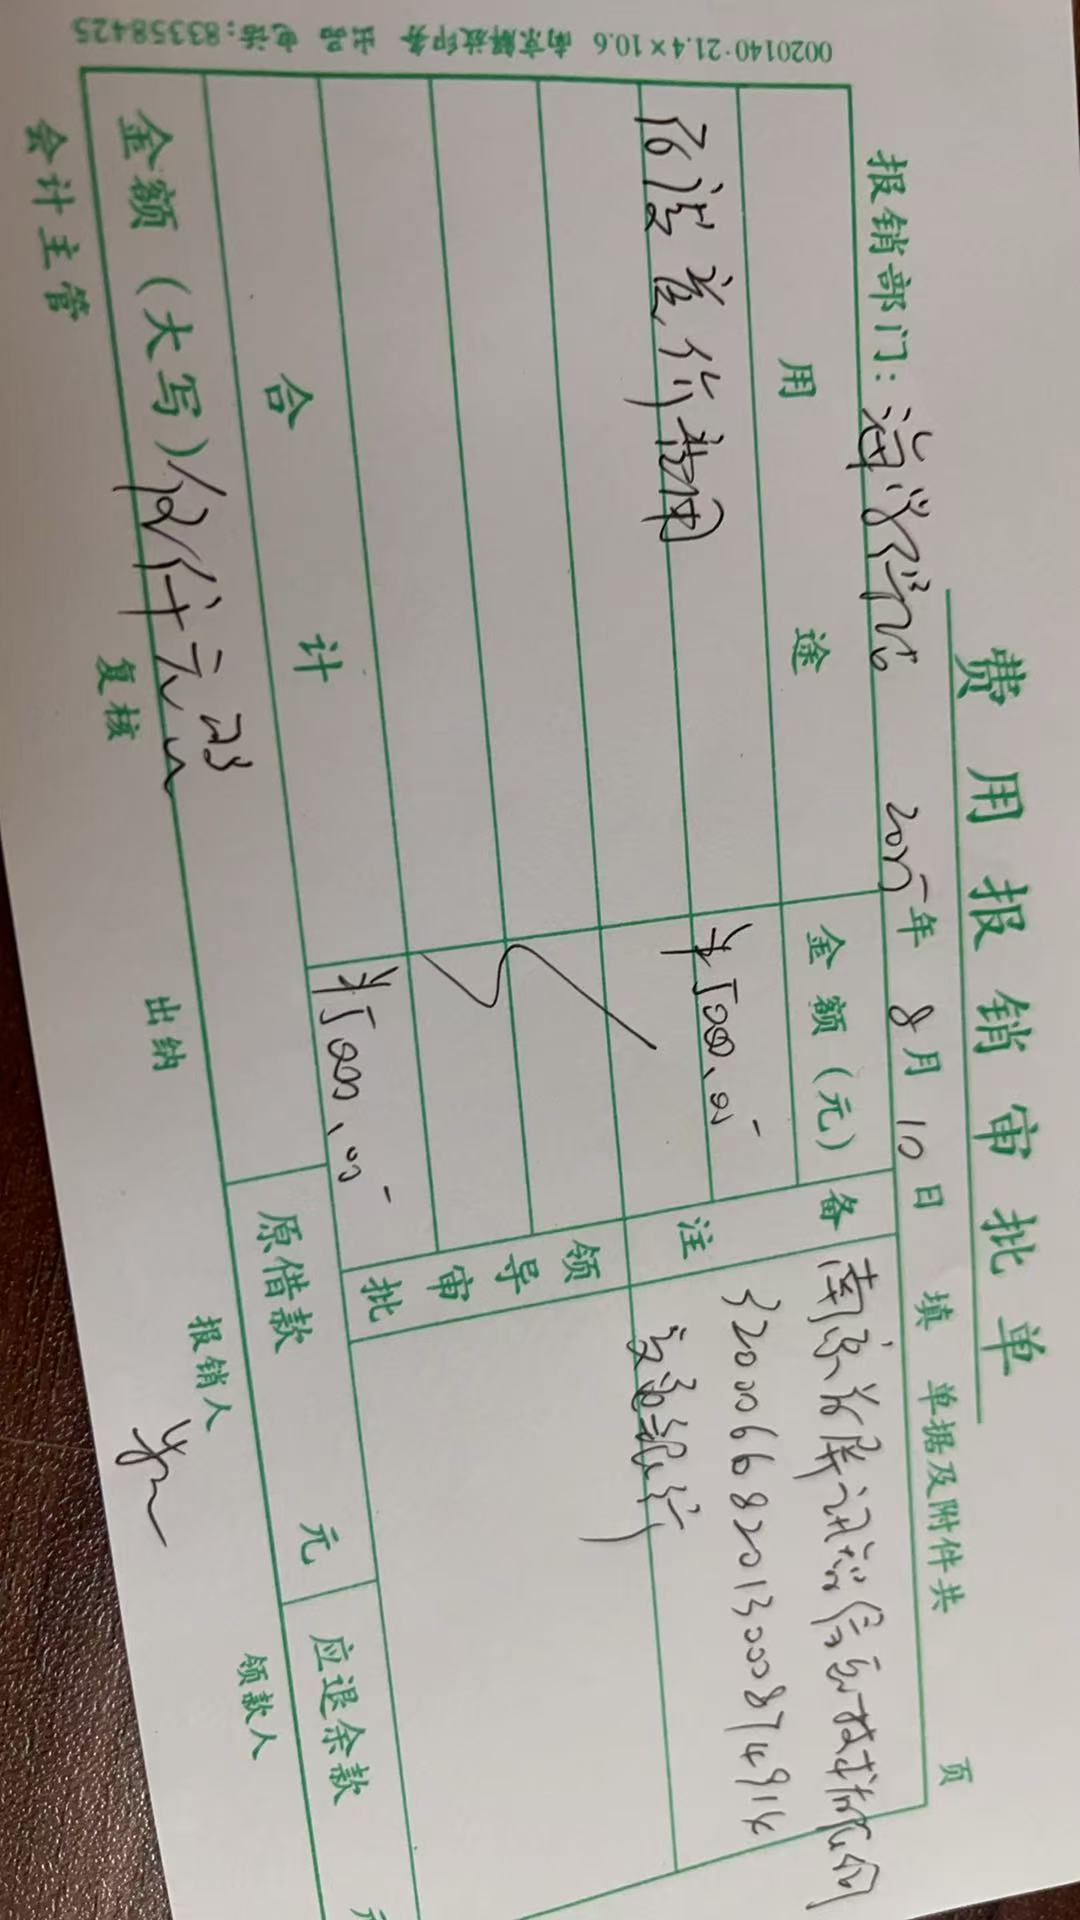 费用报销审批单
报销部门： 2025年8月10日填 单据及附件共 页
用途 金额（元） 备注
费用 ¥5000.00
南京 信息技术有限公司
320006682013000874914
交通银行
领导审批
合计 ¥5000.00
金额（大写）伍仟元整 原借款 元 应退余款 元
会计主管 复核 出纳 报销人 领款人
0020140·21.4×10.6 南京解放印务 出品 电话:83358425